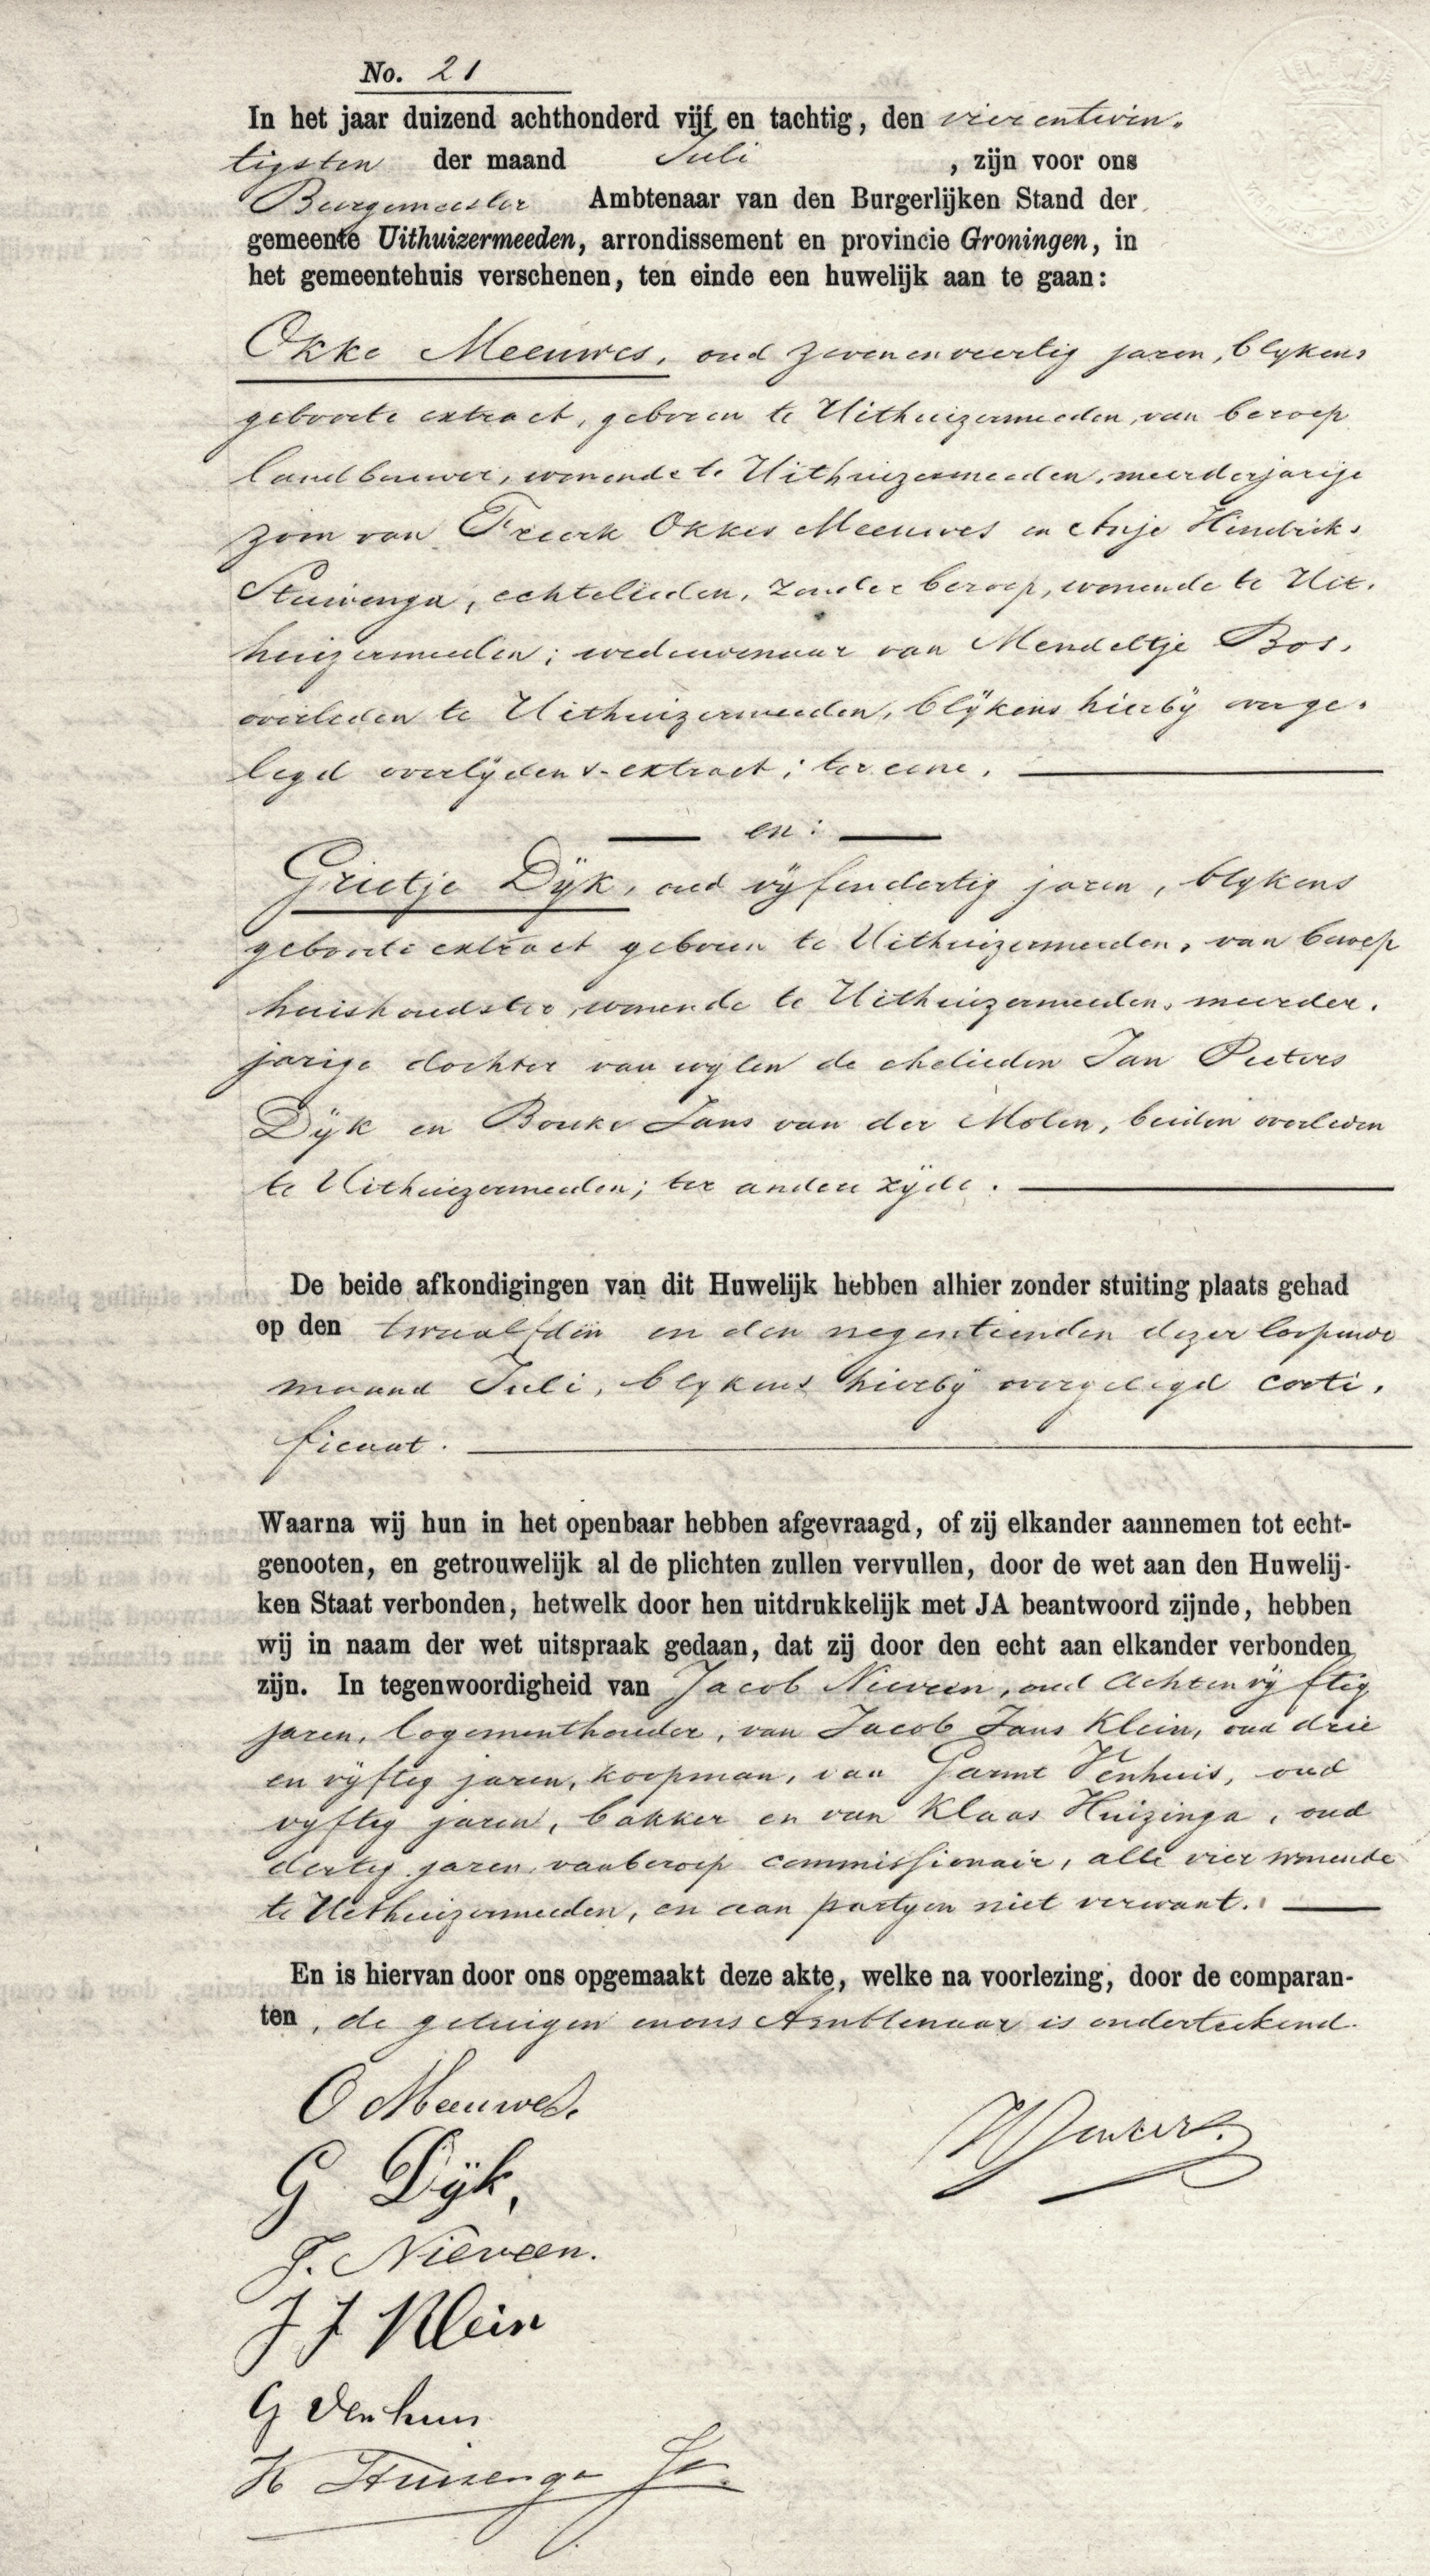 No. 21
In het jaar duizend achthonderd vijf en tachtig, den vier entwin-
tigsten der maand Juli , zijn voor ons
Burgemeester Ambtenaar van den Burgerlijken Stand der
gemeente Uithuizermeeden, arrondissement en provincie Groningen, in
het gemeentehuis verschenen, ten einde een huwelijk aan te gaan:
Okke Meeuwes, oud zevenenveertig jaren, blykens
geboorte extract, geboren te Uithuizermeeden, van beroep
landbouwer, wonende te Uithuizermeeden, meerderjarige
zoon van Freerk Okkes Meeuwes en Anje Hindriks
Stuivenga, echtelieden, zonder beroep, wonende te Uit-
huizermeeden; weduwenaar van Mendeltje Bos,
overleden te Uithuizermeeden, blÿkens hierbÿ overge-
legd overlÿdens-extract; ter eene.
en:
Grietje Dÿk, oud vÿfendertig jaren, blykens
geboorte extract geboren te Uithuizermeeden, van beroep
huishoudster, wonende te Uithuizermeeden, meerder-
jarige dochter van wylen de ehelieden Jan Pieters
Dÿk en Bouke Jans van der Molen, beiden overleden
te Uithuizermeeden; ter andere zÿde.
De beide afkondigingen van dit Huwelijk hebben alhier zonder stuiting plaats gehad
op den twaalfden en den negentienden dezer loopende
maand Juli, blykens hierbÿ overgelegd certi-
ficaat.
Waarna wij hun in het openbaar hebben afgevraagd, of zij elkander aannemen tot echt-
genooten, en getrouwelijk al de plichten zullen vervullen, door de wet aan den Huwelij-
ken Staat verbonden, hetwelk door hen uitdrukkelijk met JA beantwoord zijnde, hebben
wij in naam der wet uitspraak gedaan, dat zij door den echt aan elkander verbonden
zijn. In tegenwoordigheid van Jacob Nieveen, oud achtenvÿftig
jaren, logementhouder, van Jacob Jans Klein, oud drie
en vÿftig jaren, koopman, van Garmt Venhuis, oud
vyftig jaren, bakker en van Klaas Huizinga, oud
dertig jaren, van beroep commissionair, alle vier wonende
te Uithuizermeeden, en aan partyen niet verwant.
En is hiervan door ons opgemaakt deze akte, welke na voorlezing, door de comparan-
ten, de getuigen en ons Ambtenaar is onderteekend.
O Meeuwes.
G Dÿk,
J. Nieveen.
J J Klein
G Venhuis
K Huizenga Jz